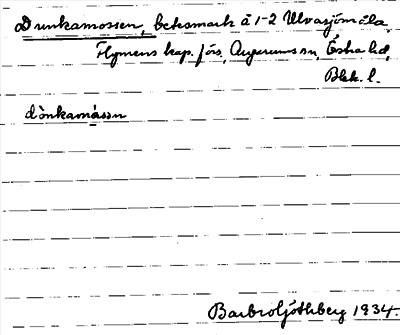 Drunkamossen, betesmark å 1-2 Ulvasjömåla,
Flymens kap. förs., Augerums sn, Östra hd,
Blek. l.
dònkamåssn
Barbro Ljóthberg 1934.